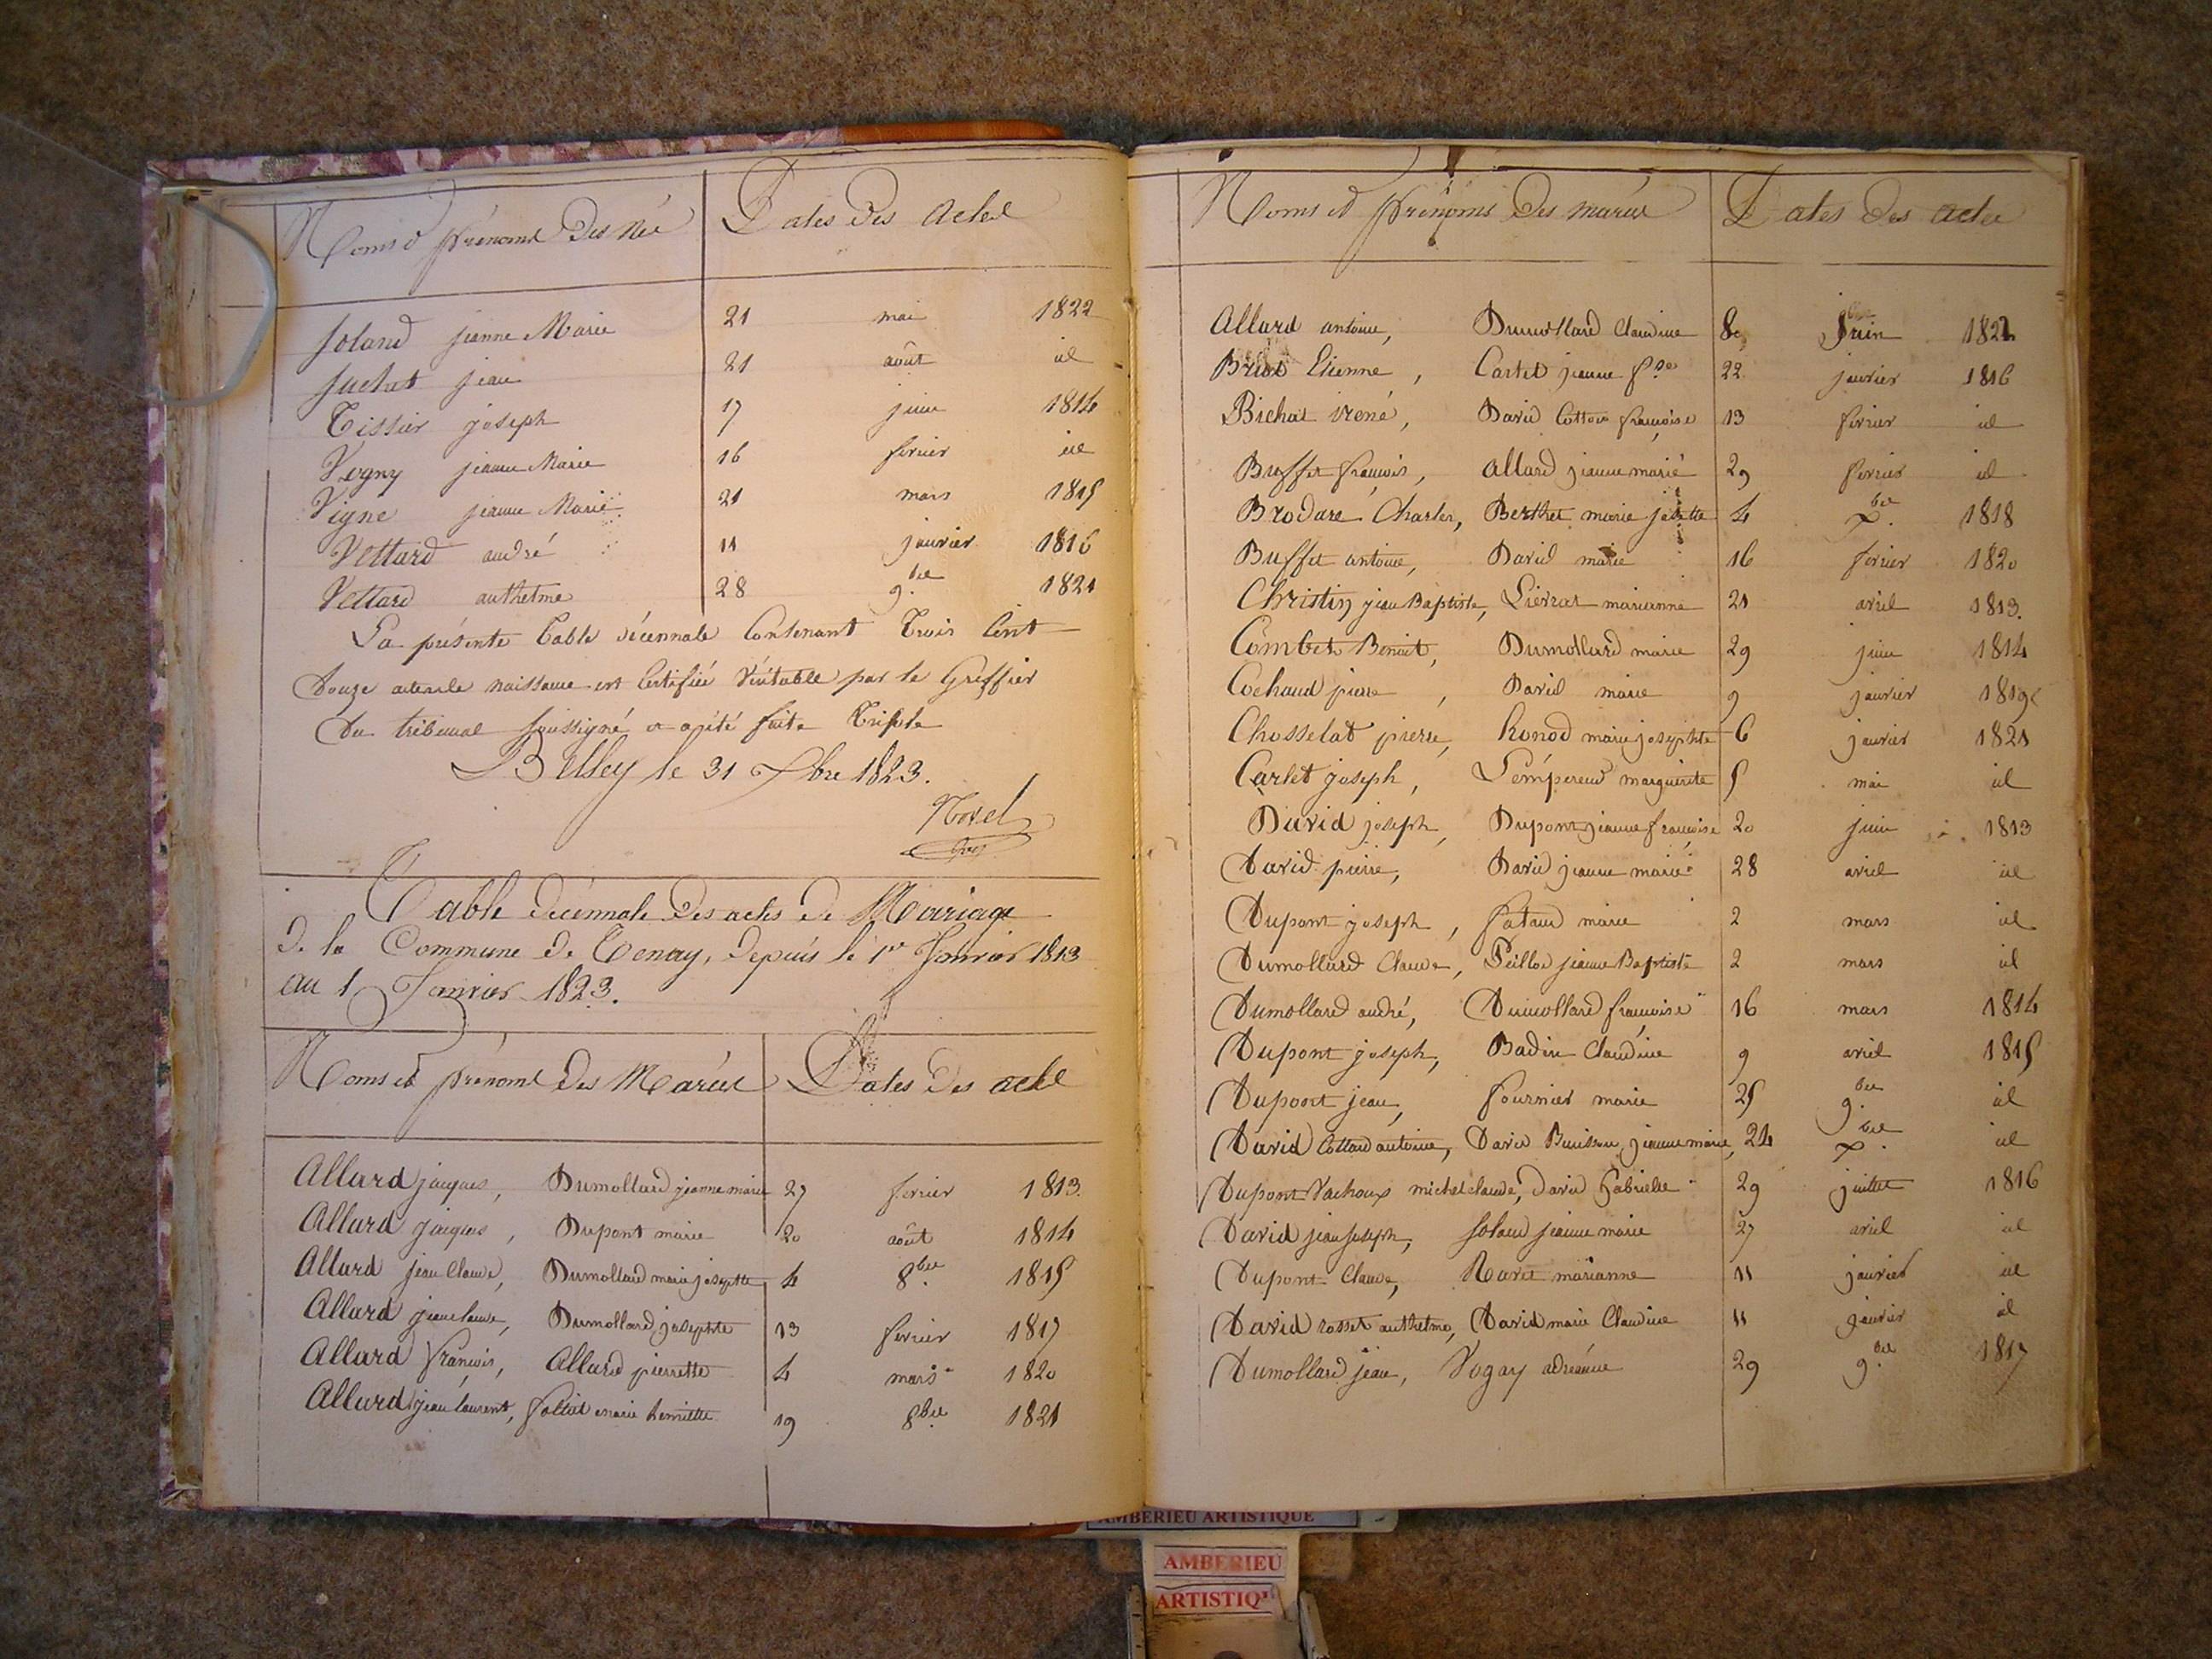 Noms et prénoms des Nés Dates des actes
Joland jeanne Marie 21 mai 1822
Juchet jean 21 août id
Tissier joseph 17 juin 1814
Vogny jeanne Marie 16 fevrier id
Vigne jeanne Marie 21 mars 1815
Vettard andré 11 janvier 1816
Vettard anthelme 28 9.bre 1821
La présente Table décennale Contenant Trois Cent
Douze actes de naissance est Certifiée Véritable par le Greffier
du tribunal soussigné et a été faite Triple
Belley le 31 Xbre 1823.
Table décennale des actes de Mariage
de la Commune de Tenay, depuis le 1er Janvier 1813
au 1 Janvier 1823.
Noms et prénoms des Mariés Dates des actes
Allard jacques, Dumollard jeanne marie 27 fevrier 1813.
Allard jacques, Dupont marie 20 août 1814
Allard jean Claude, Dumollard marie josephte 4 8bre 1815
Allard jean claude, Dumollard josephte 13 fevrier 1817
Allard françois, Allard pierrette 4 mars 1820
Allard jean laurent, marie henriette 19 8bre 1821
Noms et prénoms des mariés Dates des actes
Allard antoine, Dumollard Claudine 8 1822
Etienne, Cartet jeanne f.se 22 janvier 1816
Bichat réné, David Cotton françoise 13 février id
Buffet françois, Allard jeanne marie 29 fevrier id
Brodare Charles, Berthet marie josette 4 Xbre 1818
Buffet antoine, David marie 16 fevrier 1820
Christin jean Baptiste, Liévrat marianne 21 avril 1813.
Combet Benoit, Dumollard marie 29 juin 1814
Cochaud pierre, David marie 9 janvier 1819
Chosselat pierre, honod marie josephte 6 janvier 1821
Carlet joseph, Lempereur marguerite 5 mai id
David joseph, Dupont jeanne françoise 20 juin 1813
David pierre, David jeanne marie 28 avril id
Dupont joseph, marie 2 mars id
Dumollard Claude, Peillod jeanne Baptiste 2 mars id
Dumollard andré, Dumollard françoise 16 mars 1814
Dupont joseph, Badin Claudine 9 avril 1815
Dupont jean, fournier marie 25 9.bre id
David Cottard antoine, David Buisson jeanne marie, 24 Xbre id
Dupont Vachoux michel claude, David Gabrielle 29 juillet 1816
David jean Joseph, Joland jeanne marie 27 avril id
Dupont Claude, Ravet marianne 11 janvier id
David rosset anthelme, David marie Claudine 11 janvier id
Dumollard jean, Vogny adrianne 29 9.bre 1817
AMBERIEU ARTISTIQUE
AMBERIEU
ARTISTIQ